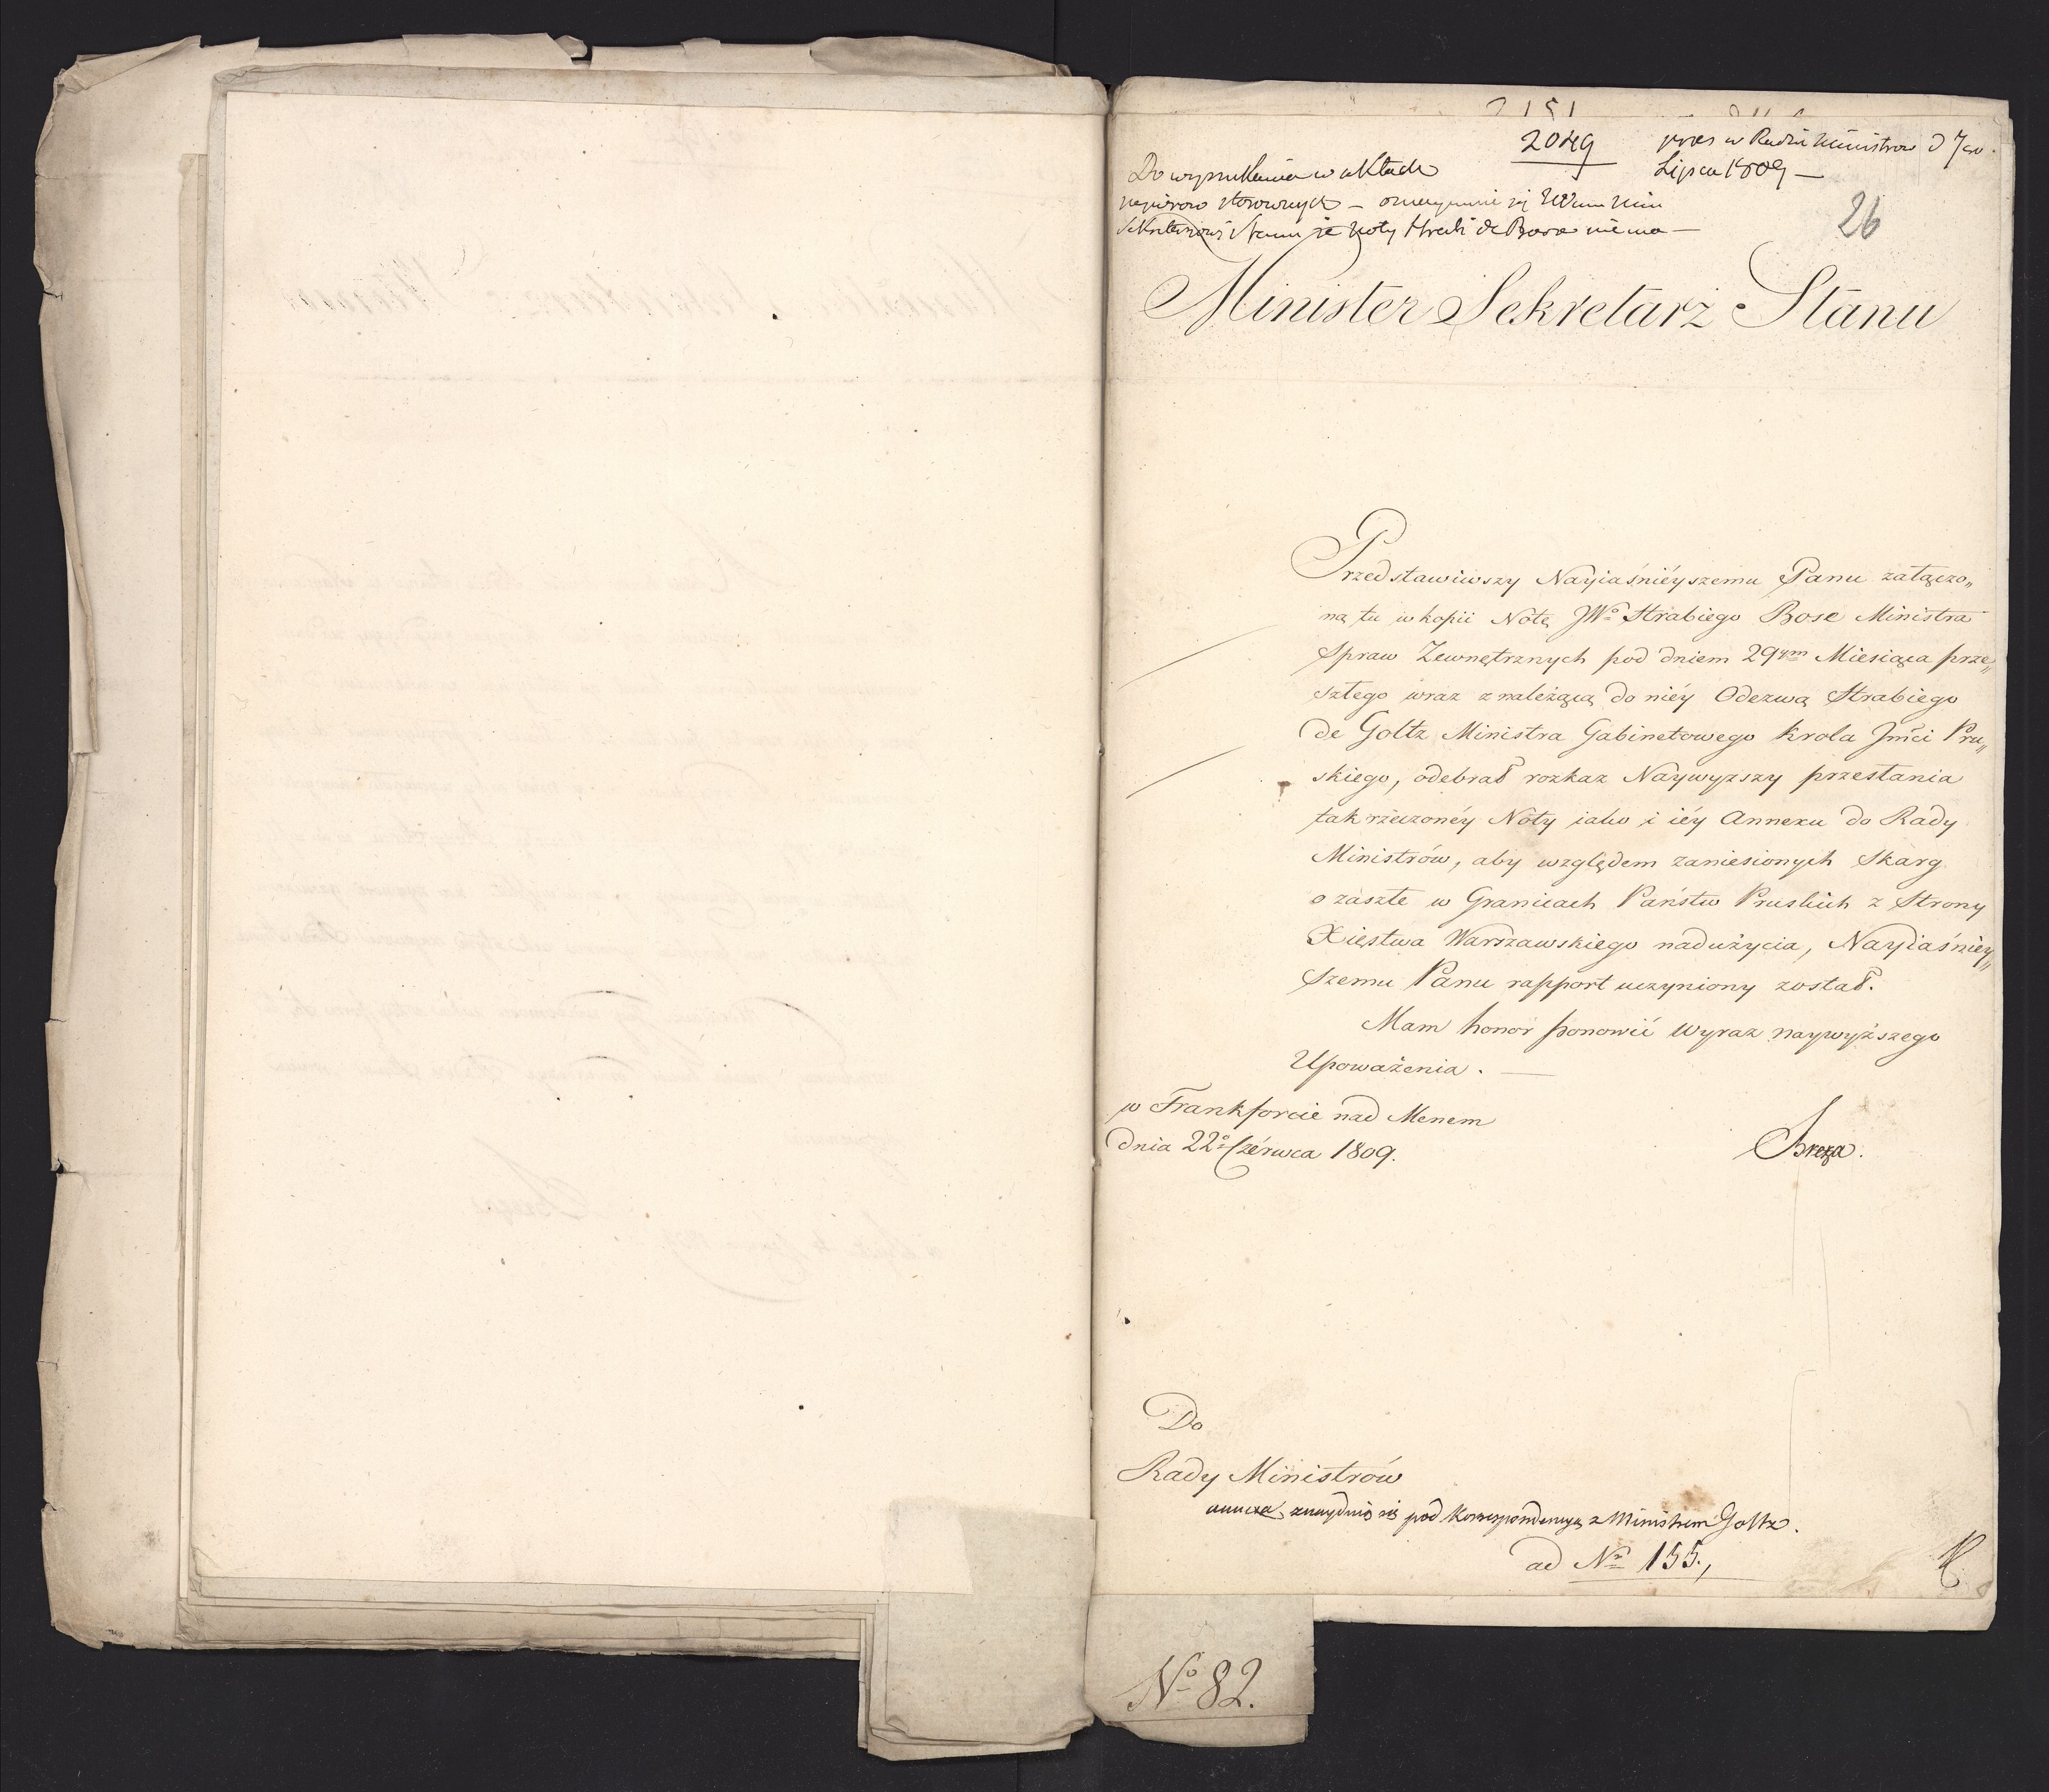 2049
pres w Radzie Ministrow d 7go
Lipca 1809 —
Do wyszukania w aktach
papierow stosownych —
Sekretarzowi Stanu że Noty Hrabi de Bose niema —
26
Minister Sekretarz Stanu
Przedstawiwszy Nayiaśniéyszemu Panu załączo„
ną tu w kopii Notę JWo Hrabiego Bose Ministra
Spraw Zewnętrznych pod dniem 29ym Miesiąca prze„
szłego wraz z należącą do niéy Odezwą Hrabiego
de Goltz Ministra Gabinetowego Krola Jmci Pru„
skiego, odebrał rozkaz Naywyzszy przesłania
tak rzeczonéy Noty iako i iéy Annexu do Rady
Ministrów, aby względem zaniesionych Skarg
o zaszłe w Granicach Państw Pruskich z Strony
Xięstwa Warszawskiego nadużycia, Nayiaśniey„
szemu Panu rapport uczyniony został.
Mam honor ponowić wyraz naywyższego
Upoważenia. —
w Frankforcie nad Menem
dnia 22o Czérwca 1809.
Breza.
Do
Rady Ministrów
annexa znayduią się pod Korrespondencyą z Ministrem Goltz.
ad Nr 155.,
No 82.